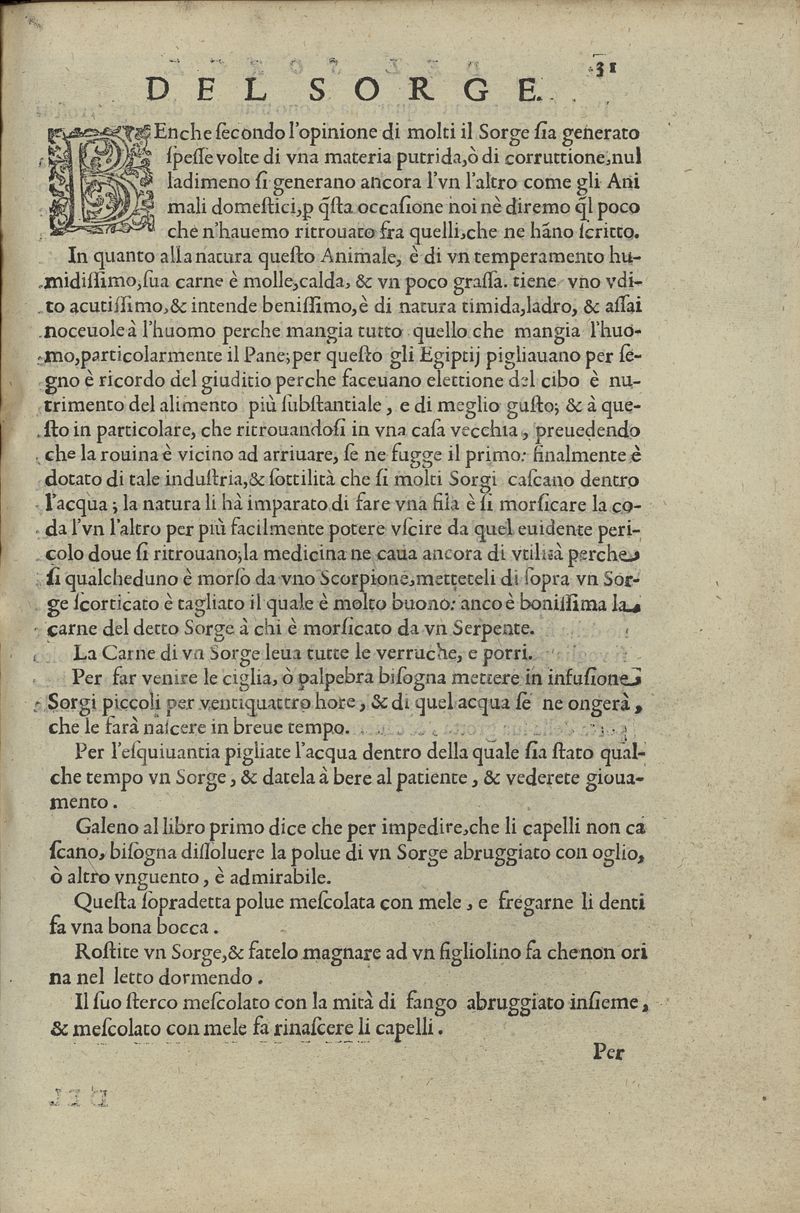 31
DEL SORGE.
BEnche ſecondo l'opinione di molti il Sorge ſia generato
ſpeſſe volte di vna materia putrida,ò di corruttione,nul
ladimeno ſi generano ancora l'vn l'altro come gli Ani
mali domeſtici,p q̃ſta occaſione noi nè diremo q̃l poco
che n'hauemo ritrouato fra quelli,che ne hãno ſcritto.
In quanto alla natura queſto Animale, è di vn temperamento hu-
midiſſimo,ſua carne è molle,calda, & vn poco graſſa. tiene vno vdi-
to acutiſſimo,& intende beniſſimo,è di natura timida,ladro, & aſſai
noceuole à l'huomo perche mangia tutto quello che mangia l'huo-
mo,particolarmente il Pane;per queſto gli Egiptij pigliauano per ſe-
gno è ricordo del giuditio perche faceuano elettione del cibo è nu-
trimento del alimento più ſubſtantiale, e di meglio guſto; & à que-
ſto in particolare, che ritrouandoſi in vna caſa vecchia, preuedendo
che la rouina è vicino ad arriuare, ſe ne fugge il primo: finalmente è
dotato di tale induſtria,& ſottilità che ſi molti Sorgi caſcano dentro
l'acqua; la natura li hà imparato di fare vna fila è ſi morſicare la co-
da l'vn l'altro per più facilmente potere vſcire da quel euidente peri-
colo doue ſi ritrouano;la medicina ne caua ancora di vtilità perche
ſi qualcheduno è morſo da vno Scorpione,metteteli di ſopra vn Sor-
ge ſcorticato è tagliato il quale è molto buono: anco è boniſſima la
carne del detto Sorge à chi è morſicato da vn Serpente.
La Carne di vn Sorge leua tutte le verruche, e porri.
Per far venire le ciglia, ò palpebra biſogna mettere in infuſione
Sorgi piccoli per ventiquattro hore, & di quel acqua ſe ne ongerà,
che le farà naſcere in breue tempo.
Per l'eſquiuantia pigliate l'acqua dentro della quale ſia ſtato qual-
che tempo vn Sorge, & datela à bere al patiente, & vederete gioua-
mento.
Galeno al libro primo dice che per impedire,che li capelli non ca
ſcano, biſogna diſſoluere la polue di vn Sorge abruggiato con oglio,
ò altro vnguento, è admirabile.
Queſta ſopradetta polue meſcolata con mele, e fregarne li denti
fa vna bona bocca.
Roſtite vn Sorge,& fatelo magnare ad vn figliolino fa chenon ori
na nel letto dormendo.
Il ſuo ſterco meſcolato con la mità di fango abruggiato inſieme,
& meſcolato con mele fa rinaſcere li capelli.
Per